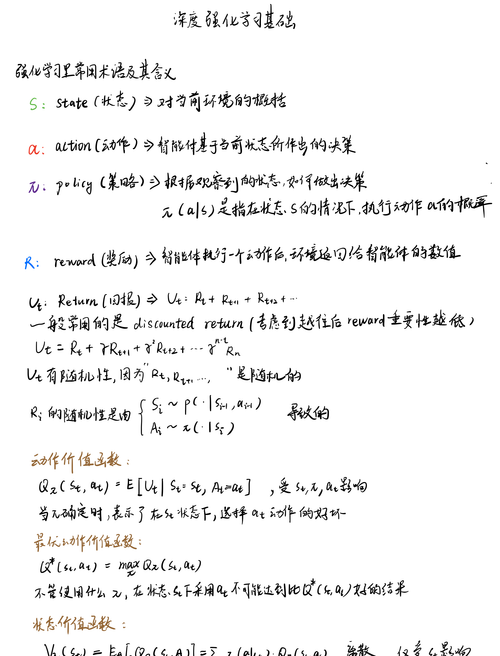 深度强化学习基础
强化学习里常用术语及其含义
S: state (状态) ⇒ 对当前环境的概括
a: action (动作) ⇒ 智能体基于当前状态所作出的决策
π: policy (策略) ⇒ 根据观察到的状态,如何做出决策
π(a|s) 是指在状态 S 的情况下,执行动作 a 的概率
R: reward (奖励) ⇒ 智能体执行一个动作后,环境返回给智能体的数值
Ut: Return (回报) ⇒ Ut: Rt + Rt+1 + Rt+2 + ...
一般常用的是 discounted return (考虑到越往后 reward 重要性越低)
Ut = Rt + γRt+1 + γ²Rt+2 + ... γⁿ⁻ᵗ Rn
Ut 有随机性,因为 "Rt, Rt+1, ..., " 是随机的
Ri 的随机性是由 { Si ~ p(·|si-1, ai-1) 导致的
Ai ~ π(·|si)
动作价值函数:
Qπ(st, at) = E[Ut | St=st, At=at] ,受 st, π, at 影响
当π确定时,表示了在st状态下,选择at动作的好坏
最优动作价值函数:
Q*(st, at) = max π Qπ(st, at)
不管使用什么π,在状态st下采用at不可能达到比Q*(st, at)好的结果
状态价值函数: